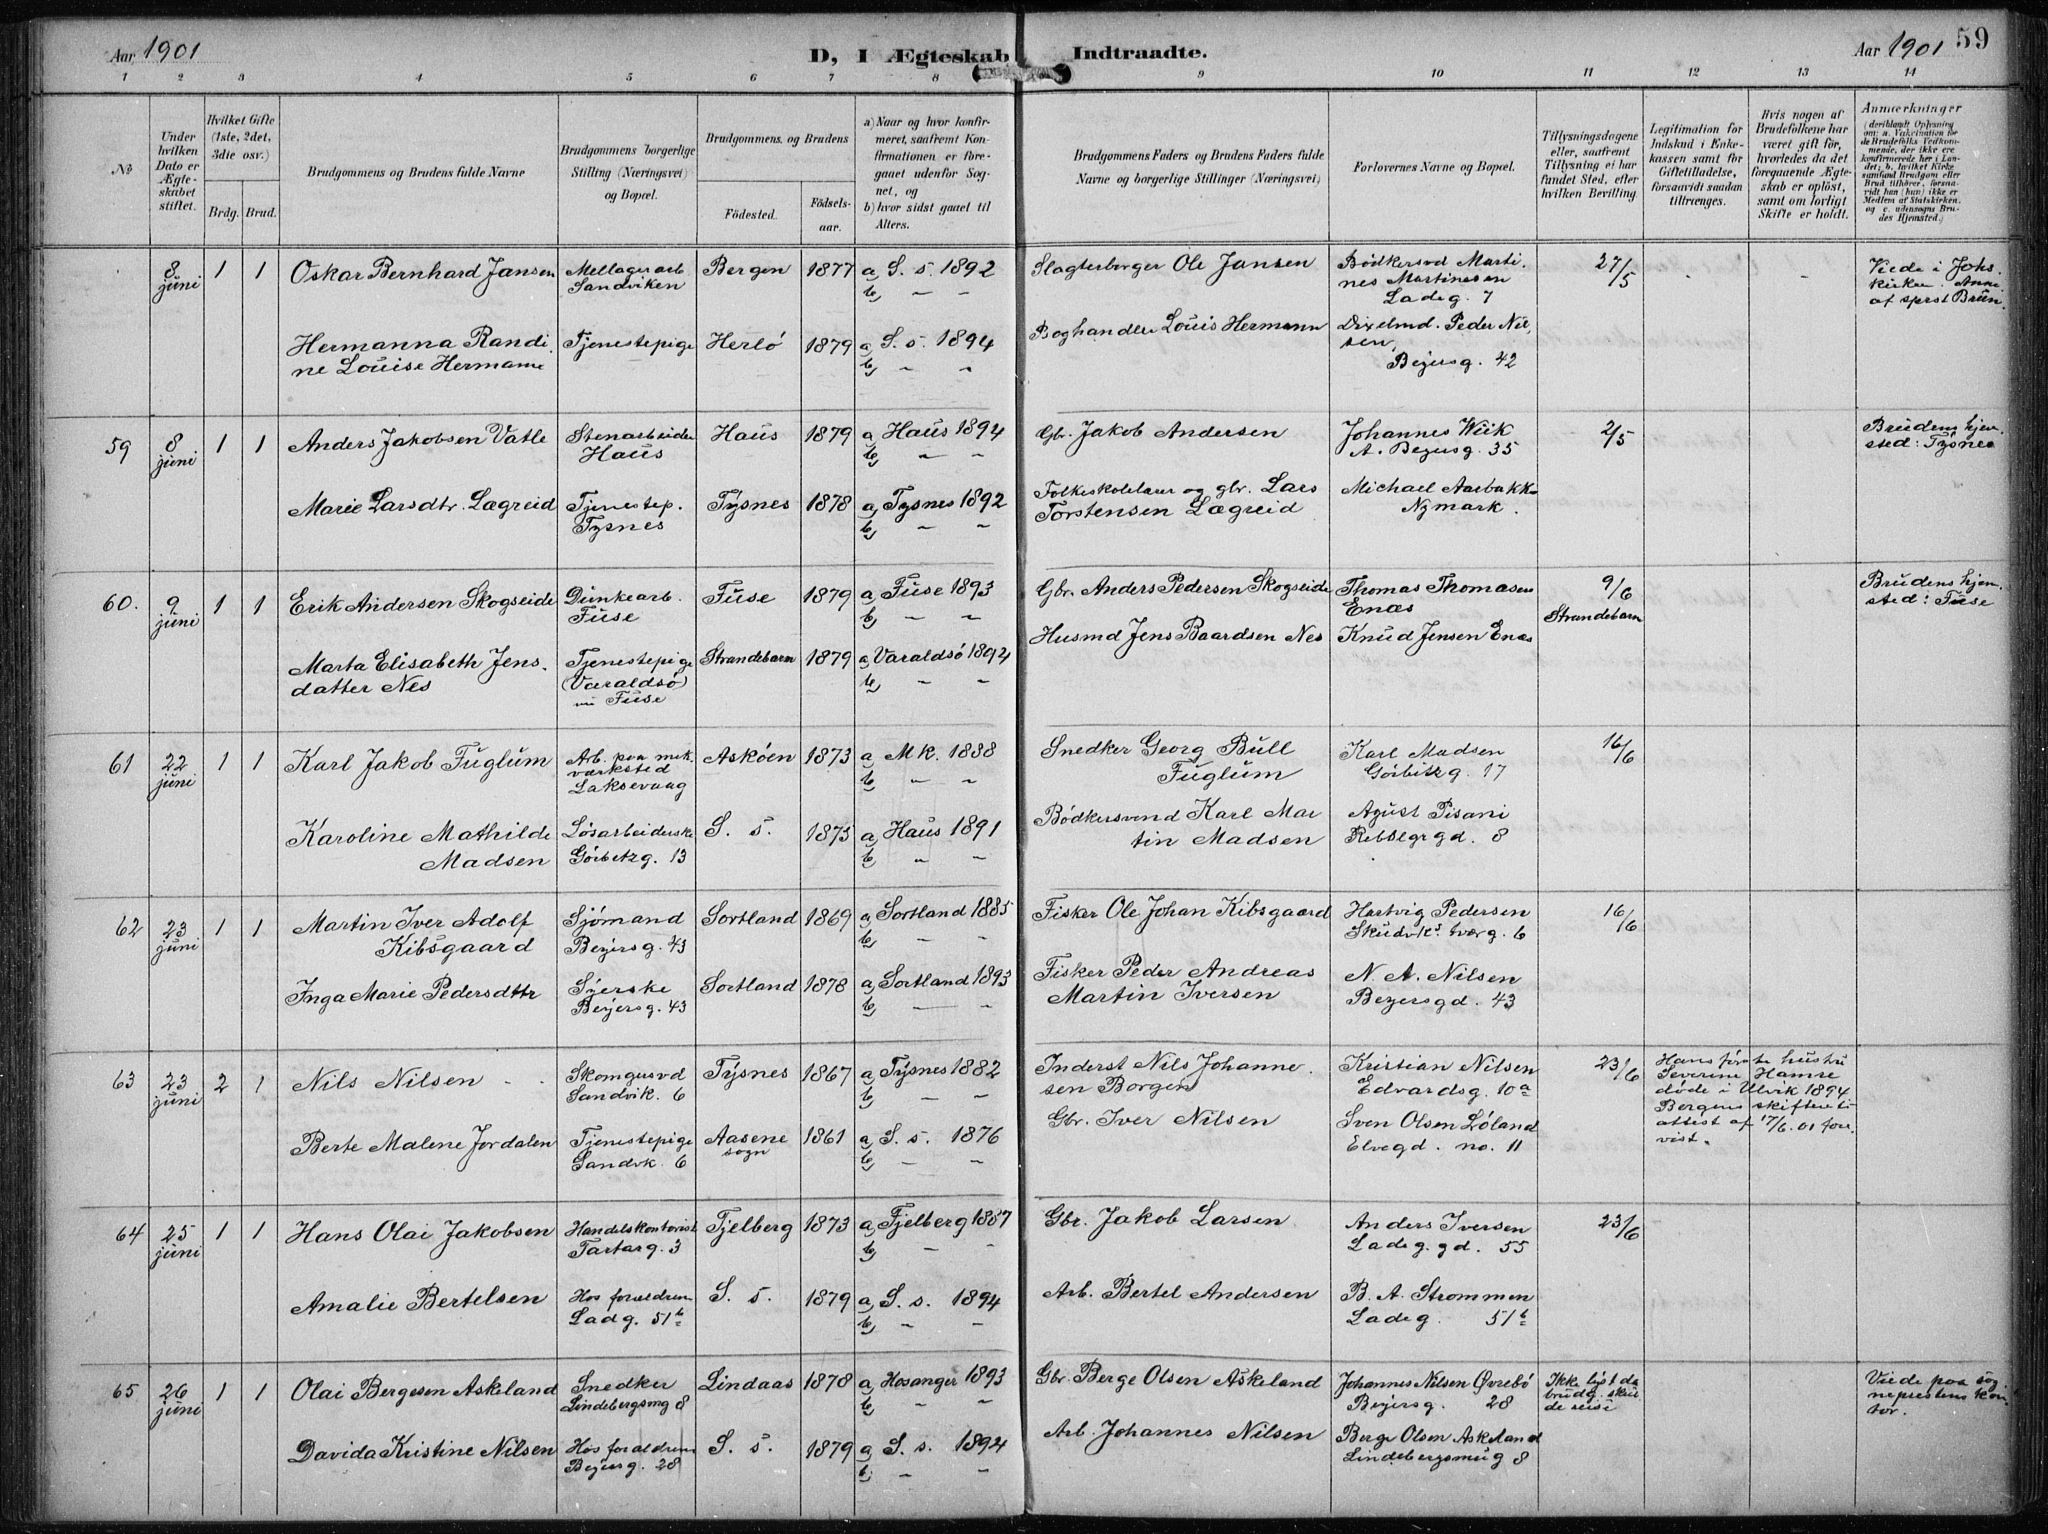 Aar 1901
D, I Ægteskab Indtraadte.
Aar 1901 59
1 2 3 4 5 6 7 8 9 10 11 12 13 14
No
Under hvilken Dato er Ægteskabet stiftet.
Hvilket Gifte (1ste, 2det, 3die osv.)
Brdg. Brud.
Brudgommens og Brudens fulde Navne
Brudgommens borgerlige Stilling (Næringsvei) og Bopæl.
Brudgommens og Brudens
Födested.
Födselsaar.
a) Naar og hvor konfirmeret, saafremt Konfirmationen er foregaaet udenfor Sognet, og
b) hvor sidst gaaet til Alters.
Brudgommens Faders og Brudens Faders fulde Navne og borgerlige Stillinger (Næringsvei)
Forlovernes Navne og Bopæl.
Tillysningsdagene eller, saafremt Tillysning ei har fundet Sted, efter hvilken Bevilling
Legitimation for Indskud i Enkekassen samt for Giftetilladelse, forsaavidt saadan tiltrænges.
Hvis nogen af Brudefolkene har været gift för, hvorledes da det foregaaende Ægteskab er oplöst, samt om lovligt Skifte er holdt.
Anmærkninger
(deriblandt Oplysning om: a. Vakcination for de Brudefolks Vedkommende, der ikke ere konfirmerede her i Landet; b. hvilket Kirkesamfund Brudgom eller Brud tilhörer, forsaavidt han (hun) ikke er Medlem af Statskirken, og c. udensogns Brudes Hjemsted.)
8 juni 1 1 Oskar Bernhard Jansen
Mellagerarb. Sandviken
Bergen 1877 a) S. s. 1892
b) " "
Slagterborger Ole Jansen
Bödkersvd Marti-
nes Martinesen
Ladeg. 7
27/5
Viede i Johs.
kirken. Anm.
af sprst Bruun
Hermanna Randi-
ne Louise Hermann
Tjenestepige Herlö 1879 a) S. s. 1894
b) " "
Boghandler Louis Hermann
Dixelmd. Peder Nil-
sen,
Beyersg. 42
59 8 juni 1 1 Anders Jakobsen Vatle
Stenarbeider
Haus
Haus 1879 a) Haus 1894
b) " "
Gbr. Jakob Andersen
Johannes Wiik
A. Beyersg. 35
2/5
Brudens hjem-
sted: Tysnes
Marie Larsdtr. Lægreid
Tjenestep.
Tysnes
Tysnes 1878 a) Tysnes 1892
b) " "
Folkeskolelærer og gbr. Lars
Torstensen Lægreid
Michael Aarbakke
Nymark.
60. 9 juni 1 1 Erik Andersen Skogseide
Dunkearb.
Fuse
Fuse 1879 a) Fuse 1893
b) " "
Gbr. Anders Pedersen Skogseide
Thomas Thomasen
Enæs
9/6
Strandebarn
Brudens hjem-
sted: Fuse
Marta Elisabeth Jens-
datter Nes
Tjenestepige
(Varaldsö)
nu Fuse
Strandebarn 1879 a) Varaldsö 1894
b) " "
Husmd Jens Baardsen Nes
Knud Jensen Enæs
61 22 juni 1 1 Karl Jakob Fuglum
Arb. paa mek.
værksted
Laksevaag
Asköen 1873 a) M. k. 1888
b) " "
Snedker Georg Bull
Fuglum
Karl Madsen
Görbitzg. 17
16/6
Karoline Mathilde
Madsen
Lösarbeiderske
Görbitzg. 13
S. s. 1873 a) Haus 1891
b) " "
Bödkersvend Karl Mar
tin Madsen
Agust Pisani
Rebslgrgd. 8
62 23 juni 1 1 Martin Iver Adolf
Kibsgaard
Sjömand
Beyersg. 43
Sortland 1869 a) Sortland 1885
b) " "
Fisker Ole Johan Kibsgaard
Hartvig Pedersen
Skudvks tverg. 6
16/6
Inga Marie Pedersdttr
Syerske
Beyersg. 43
Sortland 1878 a) Sortland 1893
b) " "
Fisker Peder Andreas
Martin Iversen
N. A. Nilsen
Beyersgd. 43
63 23 juni 2 1 Nils Nilsen
Skomgersvd
Sandvik. 6
Tysnes 1867 a) Tysnes 1882
b) " "
Inderst Nils Johanne-
sen Borgen
Kristian Nilsen
Edvardsg. 10a
23/6
Hans förste hustru
Severine Hamre
döde i Ulvik 1894
Bergens skifteretts
attest af 17/6.01 fore-
vist.
Berte Malene Jordalen
Tjenestepige
Sandvk. 6
Aasene
sogn
1861 a) S. s. 1876
b) " "
Gbr. Iver Nilsen
Sven Olsen Löland
Elvegd. no. 11
64 25 juni 1 1 Hans Olai Jakobsen
Handelskontorist
Tartarg. 3
Fjelberg 1873 a) Fjelberg 1887
b) " "
Gbr. Jakob Larsen
Anders Iversen
Ladeg. gd. 55
23/6
Amalie Bertelsen
Hos forældrene
Ladg. 51b
S. s. 1879 a) S. s. 1894
b) " "
Arb. Bertel Andersen
B. A. Strommen
Ladeg. 51b
65 26 juni 1 1 Olai Bergesen Askeland
Snedker
Lindebergsmg 8
Lindaas 1878 a) Hosanger 1893
b) " "
Gbr. Berge Olsen Askeland
Johannes Nilsen Övrebö
Beyersg. 28
Ikke lyst da
brudg. skul-
de reise
Viede paa sog
neprestens kon-
tor.
Davida Kristine Nilsen
Hos forældrene
Beyersg. 28
S. s. 1879 a) S. s. 1894
b) " "
Arb. Johannes Nilsen
Berge Olsen Askeland
Lindebergsmug 8